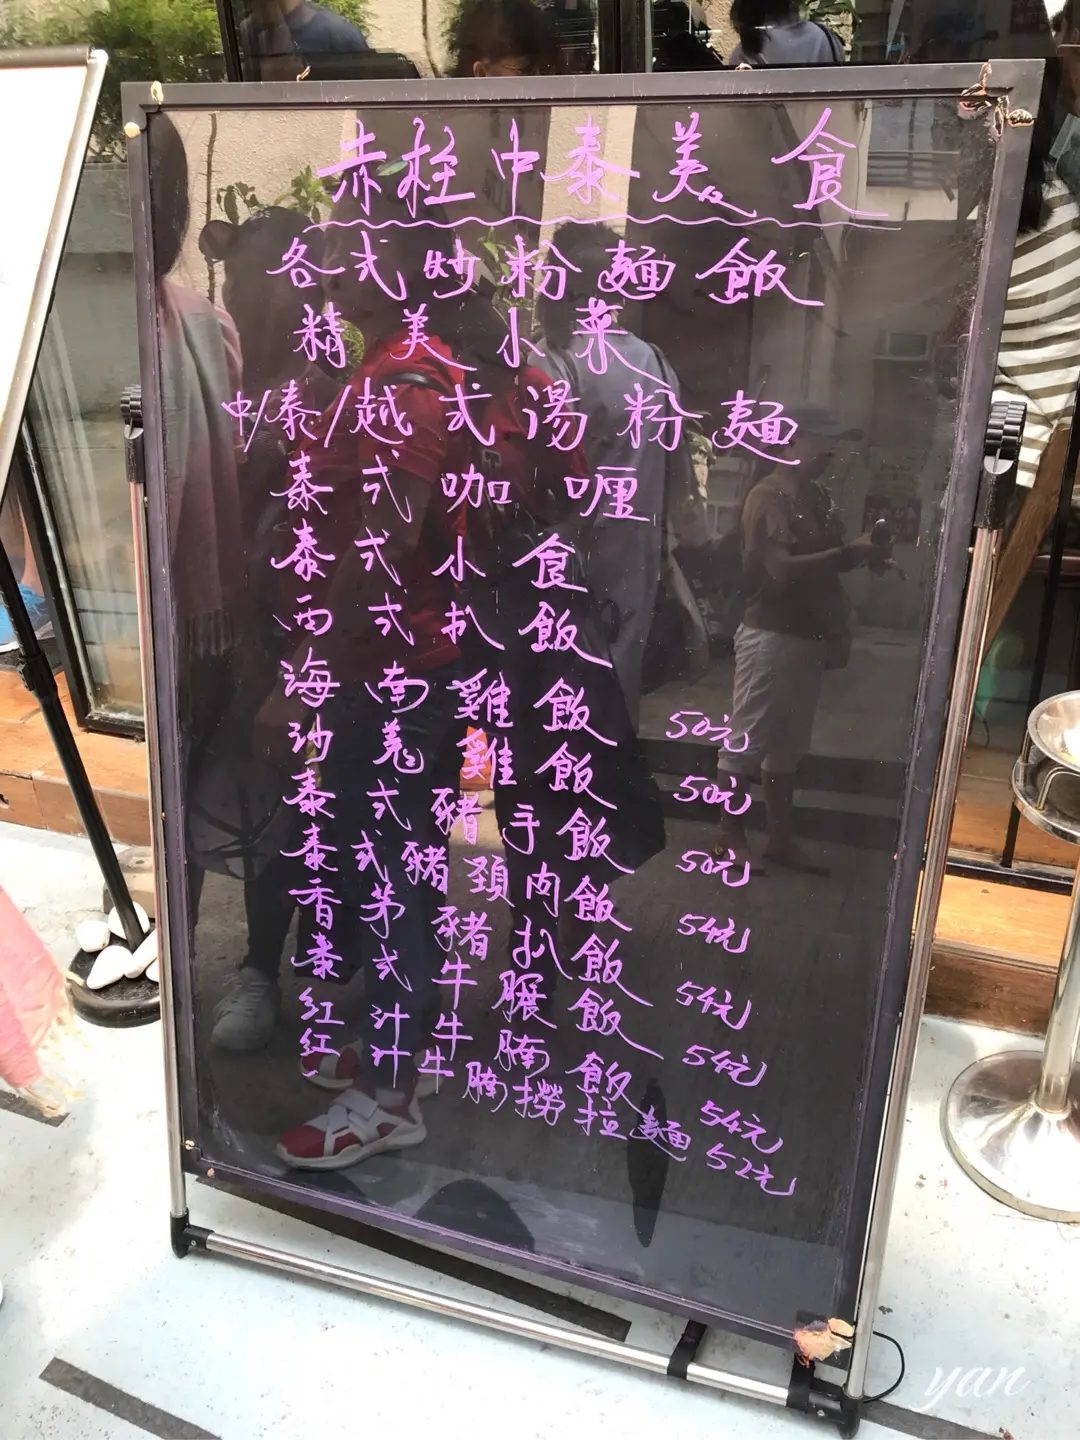 赤柱中泰美食
各式炒粉麵飯
精美小菜
中/泰/越式湯粉麵
泰式咖喱
泰式小食
西式扒飯
海南雞飯 50元
沙羌雞飯 50元
泰式豬手飯 50元
泰式豬頸肉飯 54元
香茅豬扒飯 54元
泰式牛𦟌飯 54元
紅汁牛腩飯 54元
紅汁牛腩撈拉麵 52元
yan